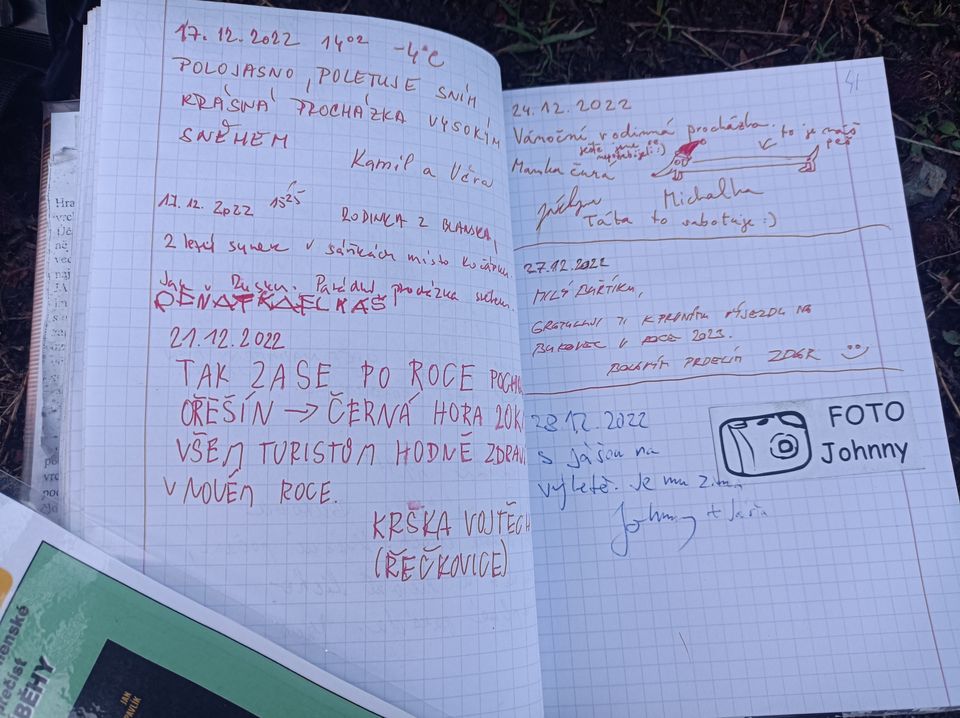 17.12.2022 14⁰² -4°C
POLOJASNO, POLETUJE SNÍH
KRÁSNÁ PROCHÁZKA VYSOKÝM
SNĚHEM
Kamil a Věra
17.12.2022 15²⁵ RODINKA Z BLANSKA,
2 letý synek v sáňkách místo kočárku.
Jak v Rusku. Parádní procházka sněhem.
21.12.2022
TAK ZASE PO ROCE POCH
OŘEŠÍN → ČERNÁ HORA 20K
VŠEM TURISTŮM HODNĚ ZDRAV
V NOVÉM ROCE.
KRŠKA VOJTĚCH
(ŘEČKOVICE)
41
24.12.2022
Vánoční rodinná procházka.
to je náš
pes
ještě jsme se
Mamka čůrá
Michalka
Táta to sabotuje :)
27.12.2022
MILÝ BARTÍKU,
GRATULUJI TI K PRVNÍMU VÝJEZDU NA
BUKOVEC V ROCE 2023.
ZDAR
28.12.2022
s Jášou na
výletě. Je mu zima
Johnny +
FOTO
Johnny
enské
BĚHY
JAN
PAVLÍK